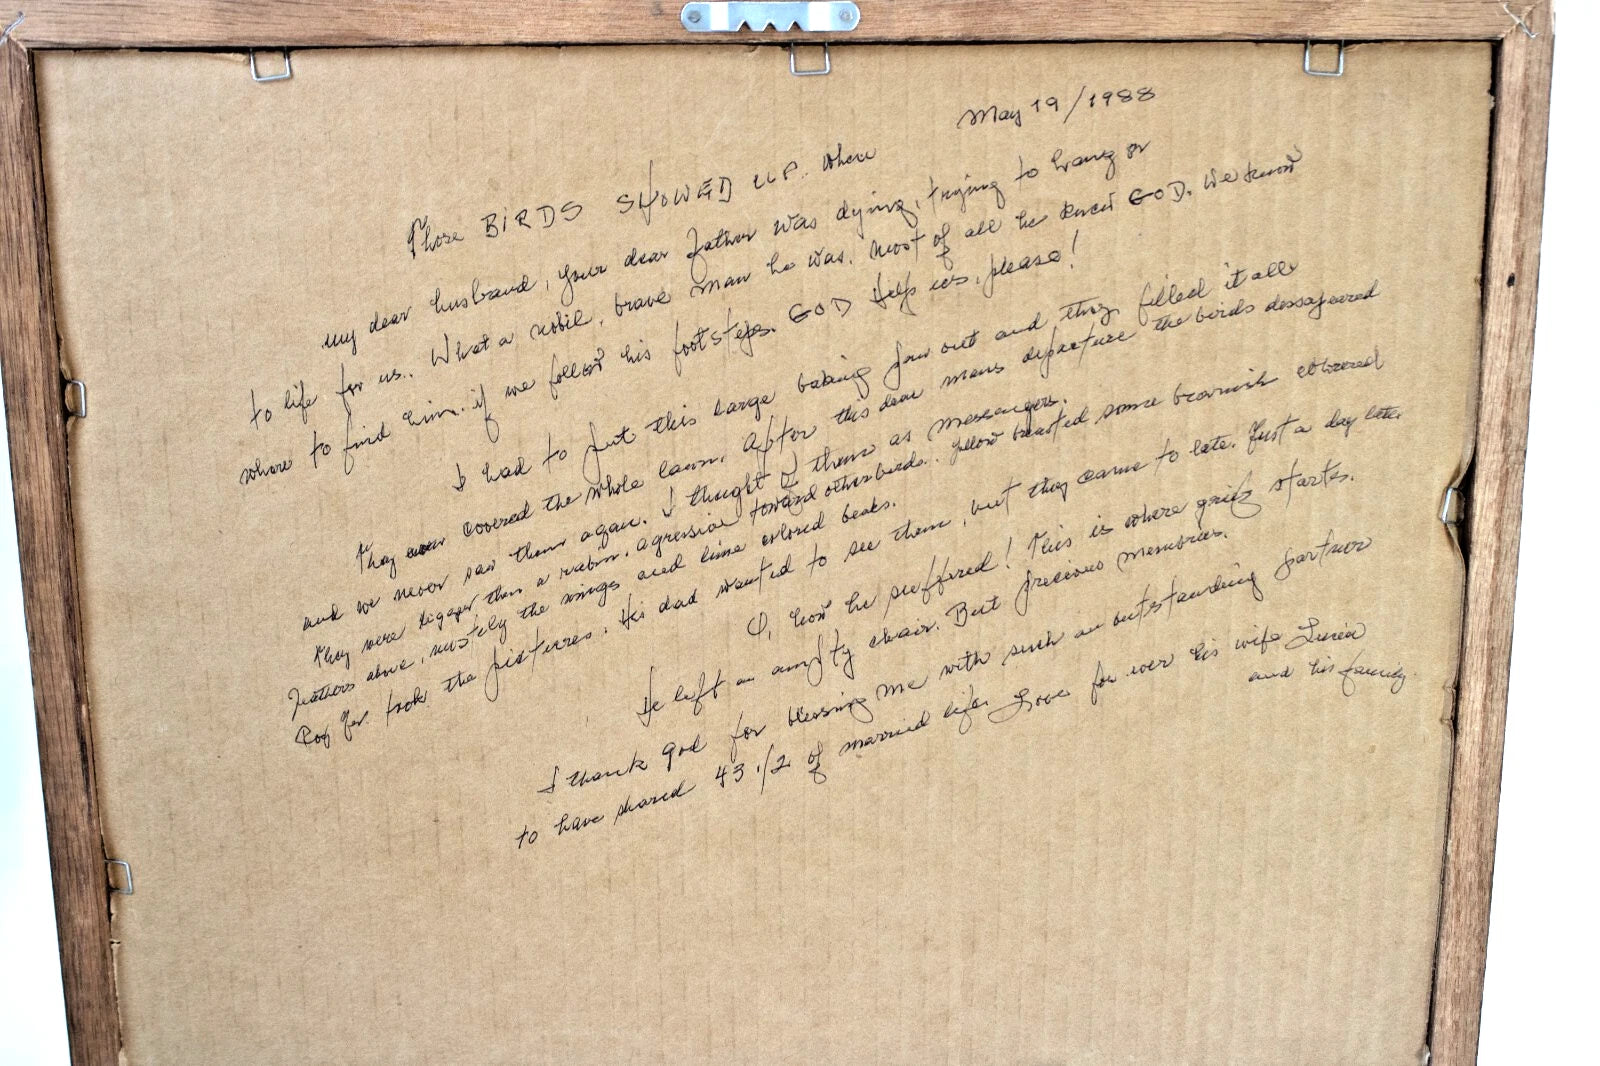 May 19/1988
Those BIRDS SHOWED UP.. When
my dear husband, your dear father was dying, trying to hang on
to life for us.. What a nobil, brave man he was. Most of all he knew GOD. We know
where to find him. if we follow his footsteps. GOD Help us, please!
I had to put this large baking pan out and they filled it all
They covered the whole lawn. After this dear mans departure the birds dessapeared
and we never saw them again. I thought of them as messengers.
They were bigger then a robin. agression toward other birds.. yellow breasted some brownish colored
feathers above, mostely the wings and lime colored beaks.
took the pictures. His dad wanted to see them, but they came to late. Just a day late.
O, how he suffered! This is where grief starts.
He left an ampty chair. But precious memories.
I thank god for blessing me with such an outstanding partner
to have shared 43 1/2 of married life. Love for ever his wife
and his family.